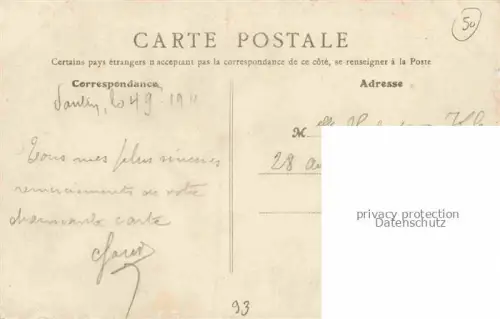 50
CARTE POSTALE
Certains pays étrangers n'acceptant pas la correspondance de ce côté, se renseigner à la Poste
Correspondance
Adresse
Pantin, le 4 9 1911
M
Tous mes plus sincères
28
remerciements de votre
charmante carte
privacy protection
Datenschutz
93